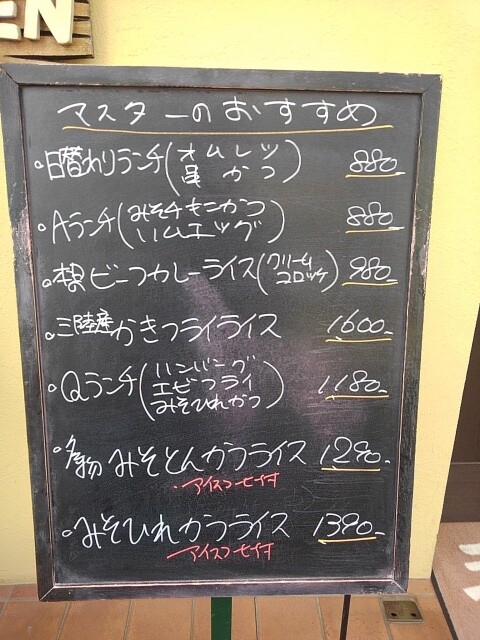 EN
マスターのおすすめ
日替わりランチ(オムレツ
かつ) 880-
Aランチ(みそチキンかつ
ハムエッグ) 880-
ビーフカレーライス(クリーム
コロッケ) 980-
三陸産かきフライライス 1,600-
Qランチ(ハンバーグ
エビフライ
みそひれかつ) 1180-
名物 みそとんかつライス 1290-
・アイスコーヒー付
みそひれかつライス 1390-
アイスコーヒー付